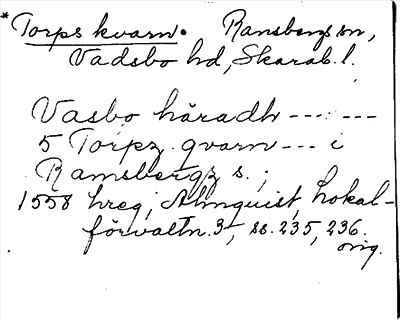 * Torps kvarn. Ransbergs sn,
Vadsbo hd, Skarab. l.
Vasbo häradh --- ---
5 Torpz qvarn --- i
Ramsbergz s. ;
1558 hreg; Almquist, Lokal-
förvaltn. 3, ss. 235, 236.
orig.